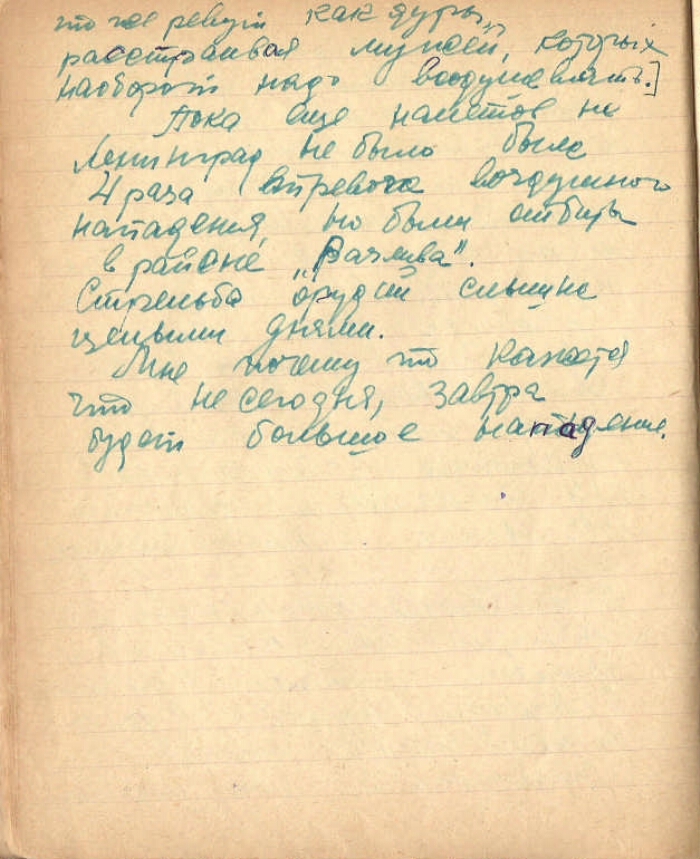 то же ревут как дуры,
расстраивая мужей, которых
наоборот надо воодушевлять.]
Пока еще налетов на
Ленинград не было было
4 раза тревога воздушного
нападения, но были отбиты
в районе „Разлива".
Стрельба орудий слышна
целыми днями.
Мне почему то кажется
что не сегодня, завтра
будет большое нападение.